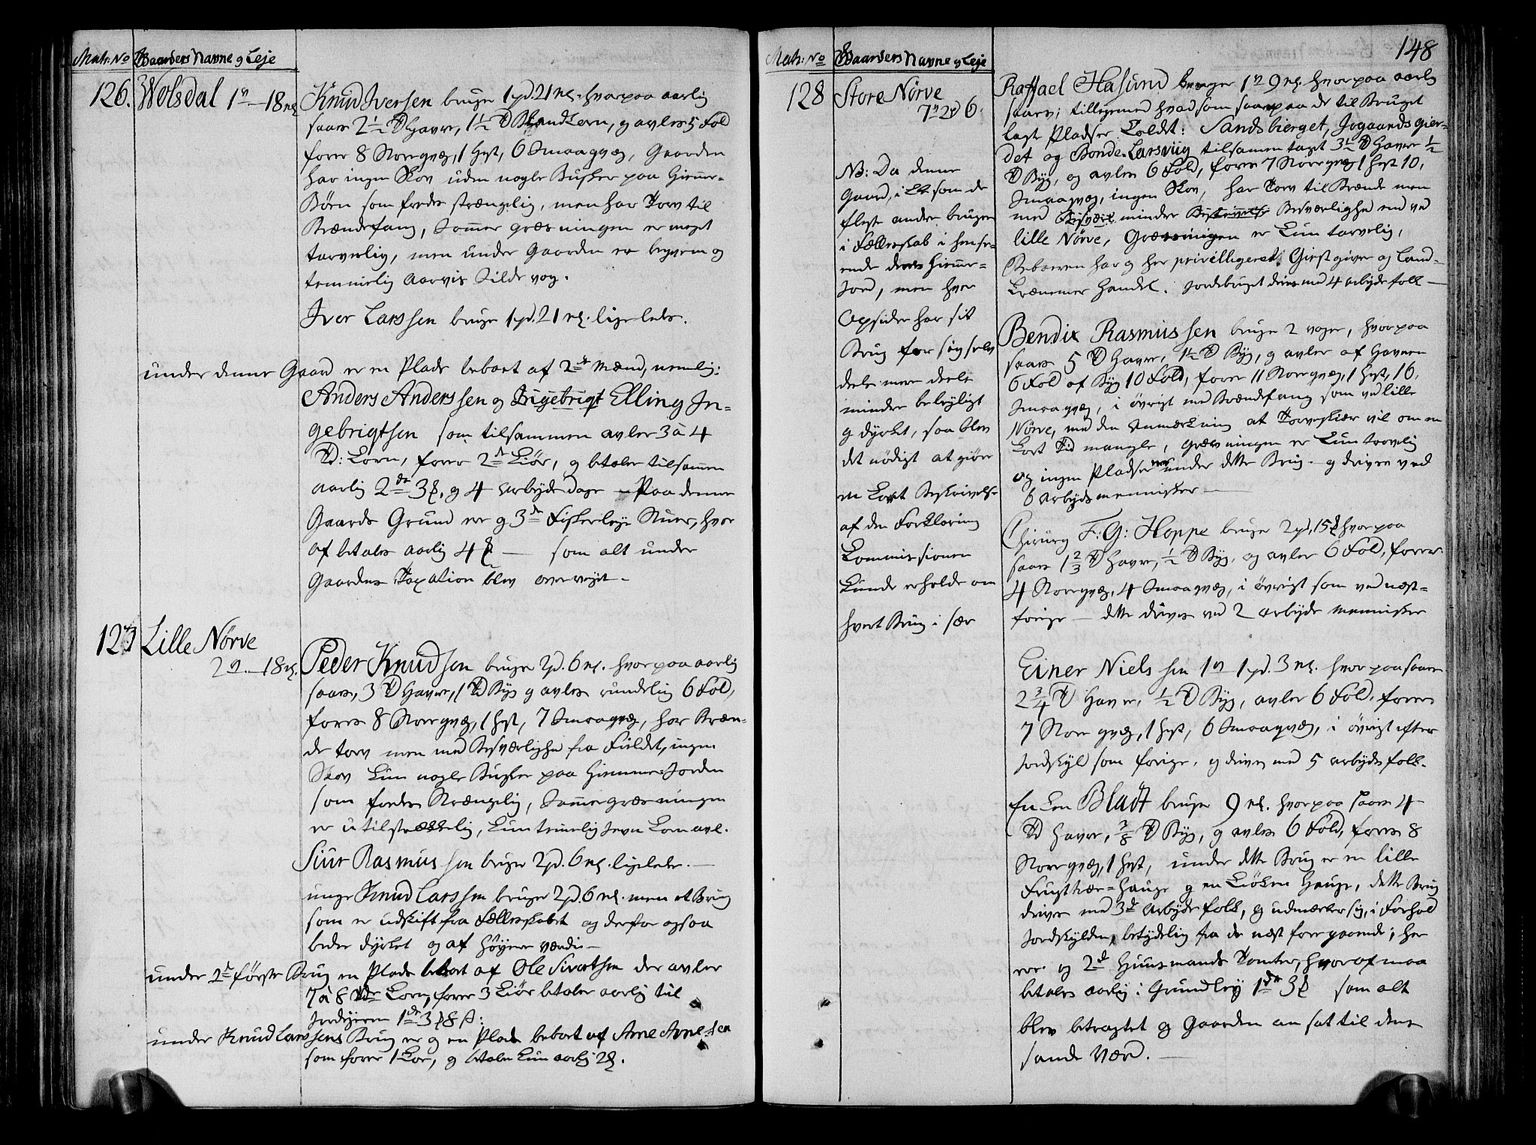 Matr: No Gaarders Navne og Leje
126. Wolsdal 1 v - 18 m
Knud Iversen bruger 1 pd 21 m. hvorpaa aarlig
saaes 2 1/2 Td Havre, 1 1/2 Td Blandkorn, og avles 5 Fold
foder 8 Storeqvæg, 1 Hest, 6 Smaaqvæg, Gaarden
har ingen Skov uden nogle Busker paa Hiemme-
Børn som fordre strængelig, men har Torv til
Brændefang, Sommer græsningen er meget
tarvelig, men under Gaarden er beqvem og
temmelig aarvis Silde vog.
Iver Larssen bruger 1 pd. 21 m. ligeledes.
under denne Gaard er en Plads beboet af 2de Mænd, nemlig:
Anders Anderssen og Ingebrigt Elling In-
gebrigtsen som tilsammen avler 3 à 4
Td: Korn, foder 2de Kiør, og betaler tilsammen
aarlig 2de 3 og 4 arbeydsdage - Paa denne
Gaards Grund er og 3de Fiskerleye Stuer, hvor
af betales aarlig 4 - som alt under
Gaardens Taxation blev overveyet -
127 Lille Nørve
2 v - 18 m.
Peder Knudsen bruger 2 pd. 6 m. hvorpaa aarlig
saaes, 3 Td Havre, 1 Td Byg og avles rundelig 6 Fold,
foder 8 Storeqvæg, 1 Hest, 7 Smaaqvæg, har Bræn-
de torv men med Besværlighed fra Fieldet, ingen
Skov kun nogle Busker paa Hiemme Jorden
som fordre Strængelig, Sommergræsningen
er utilstrækkelig, kun temmelig jevn Korn avl.
Siur Rasmussen bruger 2 pd. 6 m. ligeledes. -
unge Knud Larssen bruger 2 pd 6 m. men et Brug
som er udskift fra Fællesskabet og derfor ogsaa
bedre dyrket og af høyere værdie -
under 2de første Brug en Plads beboet af Ole Sivertsen der avler
7 à 8 Tdr Korn, foder 3 Kiør betaler aarlig til
Jordejeren 1 de 3 8 s:
under Knud Larssens Brug er og en Plads beboet af Arne Arnessen
som foder 1 Koe, og betaler kun aarlig 2
148
Matr: No Gaarders Navne og Leje
128 Store Nørve
7 v 2 pd 6.
NB: Da denne
Gaard, i Et som de
fleste andre bruges
i Fællesskab i hense-
ende deres hiemme-
jord, men hver
Opsider har sit
Brug for sig selv
deels mere deels
minder beleyligt
og dyrket, saa blev
det nødigt at giøre
en kort Beskrivelse
af den Forklaring
Commissionen
kunde erholde om
hvert Brug i sær
Raffael Haslund bruger 1 v 9 m. hvorpaa aarlig
saaes; tilligemed hvad som saaes paa de til Bruget
lagt Pladser kaldt: Sandsbierget, Jogaardsgier-
det og Bonde-Larsvig tilsammen taget 3 1/2 Td Havre 1/2
Td Byg, og avles 6 Fold, foder 7 Storeqvæg 1 Hest 10,
Smaaqvæg, ingen Skov, har Torv til Brænde men
med Besvær minder Besværlighed end ved
lille Nørve, Græsningen er kun tarvelig,
Beboeren har og her privilligeret Giestgiver og Land-
kræmmer Handel. Jordebruget drives med 4 arbejdsfolk -
Bendix Rasmussen bruger 2 voger, hvorpaa
saaes 5 Td Havre, 1 1/2 Td Byg, og avler af Havren
6 Fold af Byg 10 Fold, foder 11 Storeqvæg, 1 Hest, 16,
Smaaqvæg, i øvrigt med Brændefang som ved lille
Nørve, med den Anmærkning at Torveskiær vil om en
kort Tid mangle, græsningen er kun tarvelig
og ingen Pladse under dette Brug - og drives ved
6 arbejdsmennisker -
Chirurg F: G: Hoppe bruger 2 pd, 15 hvorpaa
saaes 1 2/3 Td Havre, 1/2 Td Byg, og avler 6 Fold, foder
4 Storeqvæg, 4 Smaaqvæg, i øvrigt som ved næst-
forige - dette drives ved 2 arbejds mennisker
Einer Nielssen 1 v 1 pd. 3 m. hvorpaa saaes
2 3/4 Td Havre, 1/2 Td Byg, avler 6 Fold, foder
7 Storeqvæg, 1 Hest, 6 Smaaqvæg, i øvrigt efter
Jordskyld som forige, og drives med 5 arbejdsfolk.
Enken Bladt bruger 9 m. hvorpaa saaes 4
Td Havre, 3/8 Td Byg, og avles 6 Fold, foder 8
Storeqvæg, 1 Hest, under dette Brug er en lille
Frugttræe-Hauge og en Kiøken Hauge, dette Brug
drives med 3de Arbejdsfolk, og udmærker sig, i Forhold
Jordskylden, betydelig fra de næst foregaaende; her
er og 2de Huusmands Tomter, hvoraf maa
betales aarlig i Grundleje 1 de 3 som alt
blev betragtet og Gaarden an sat til dens
sande Værd. -